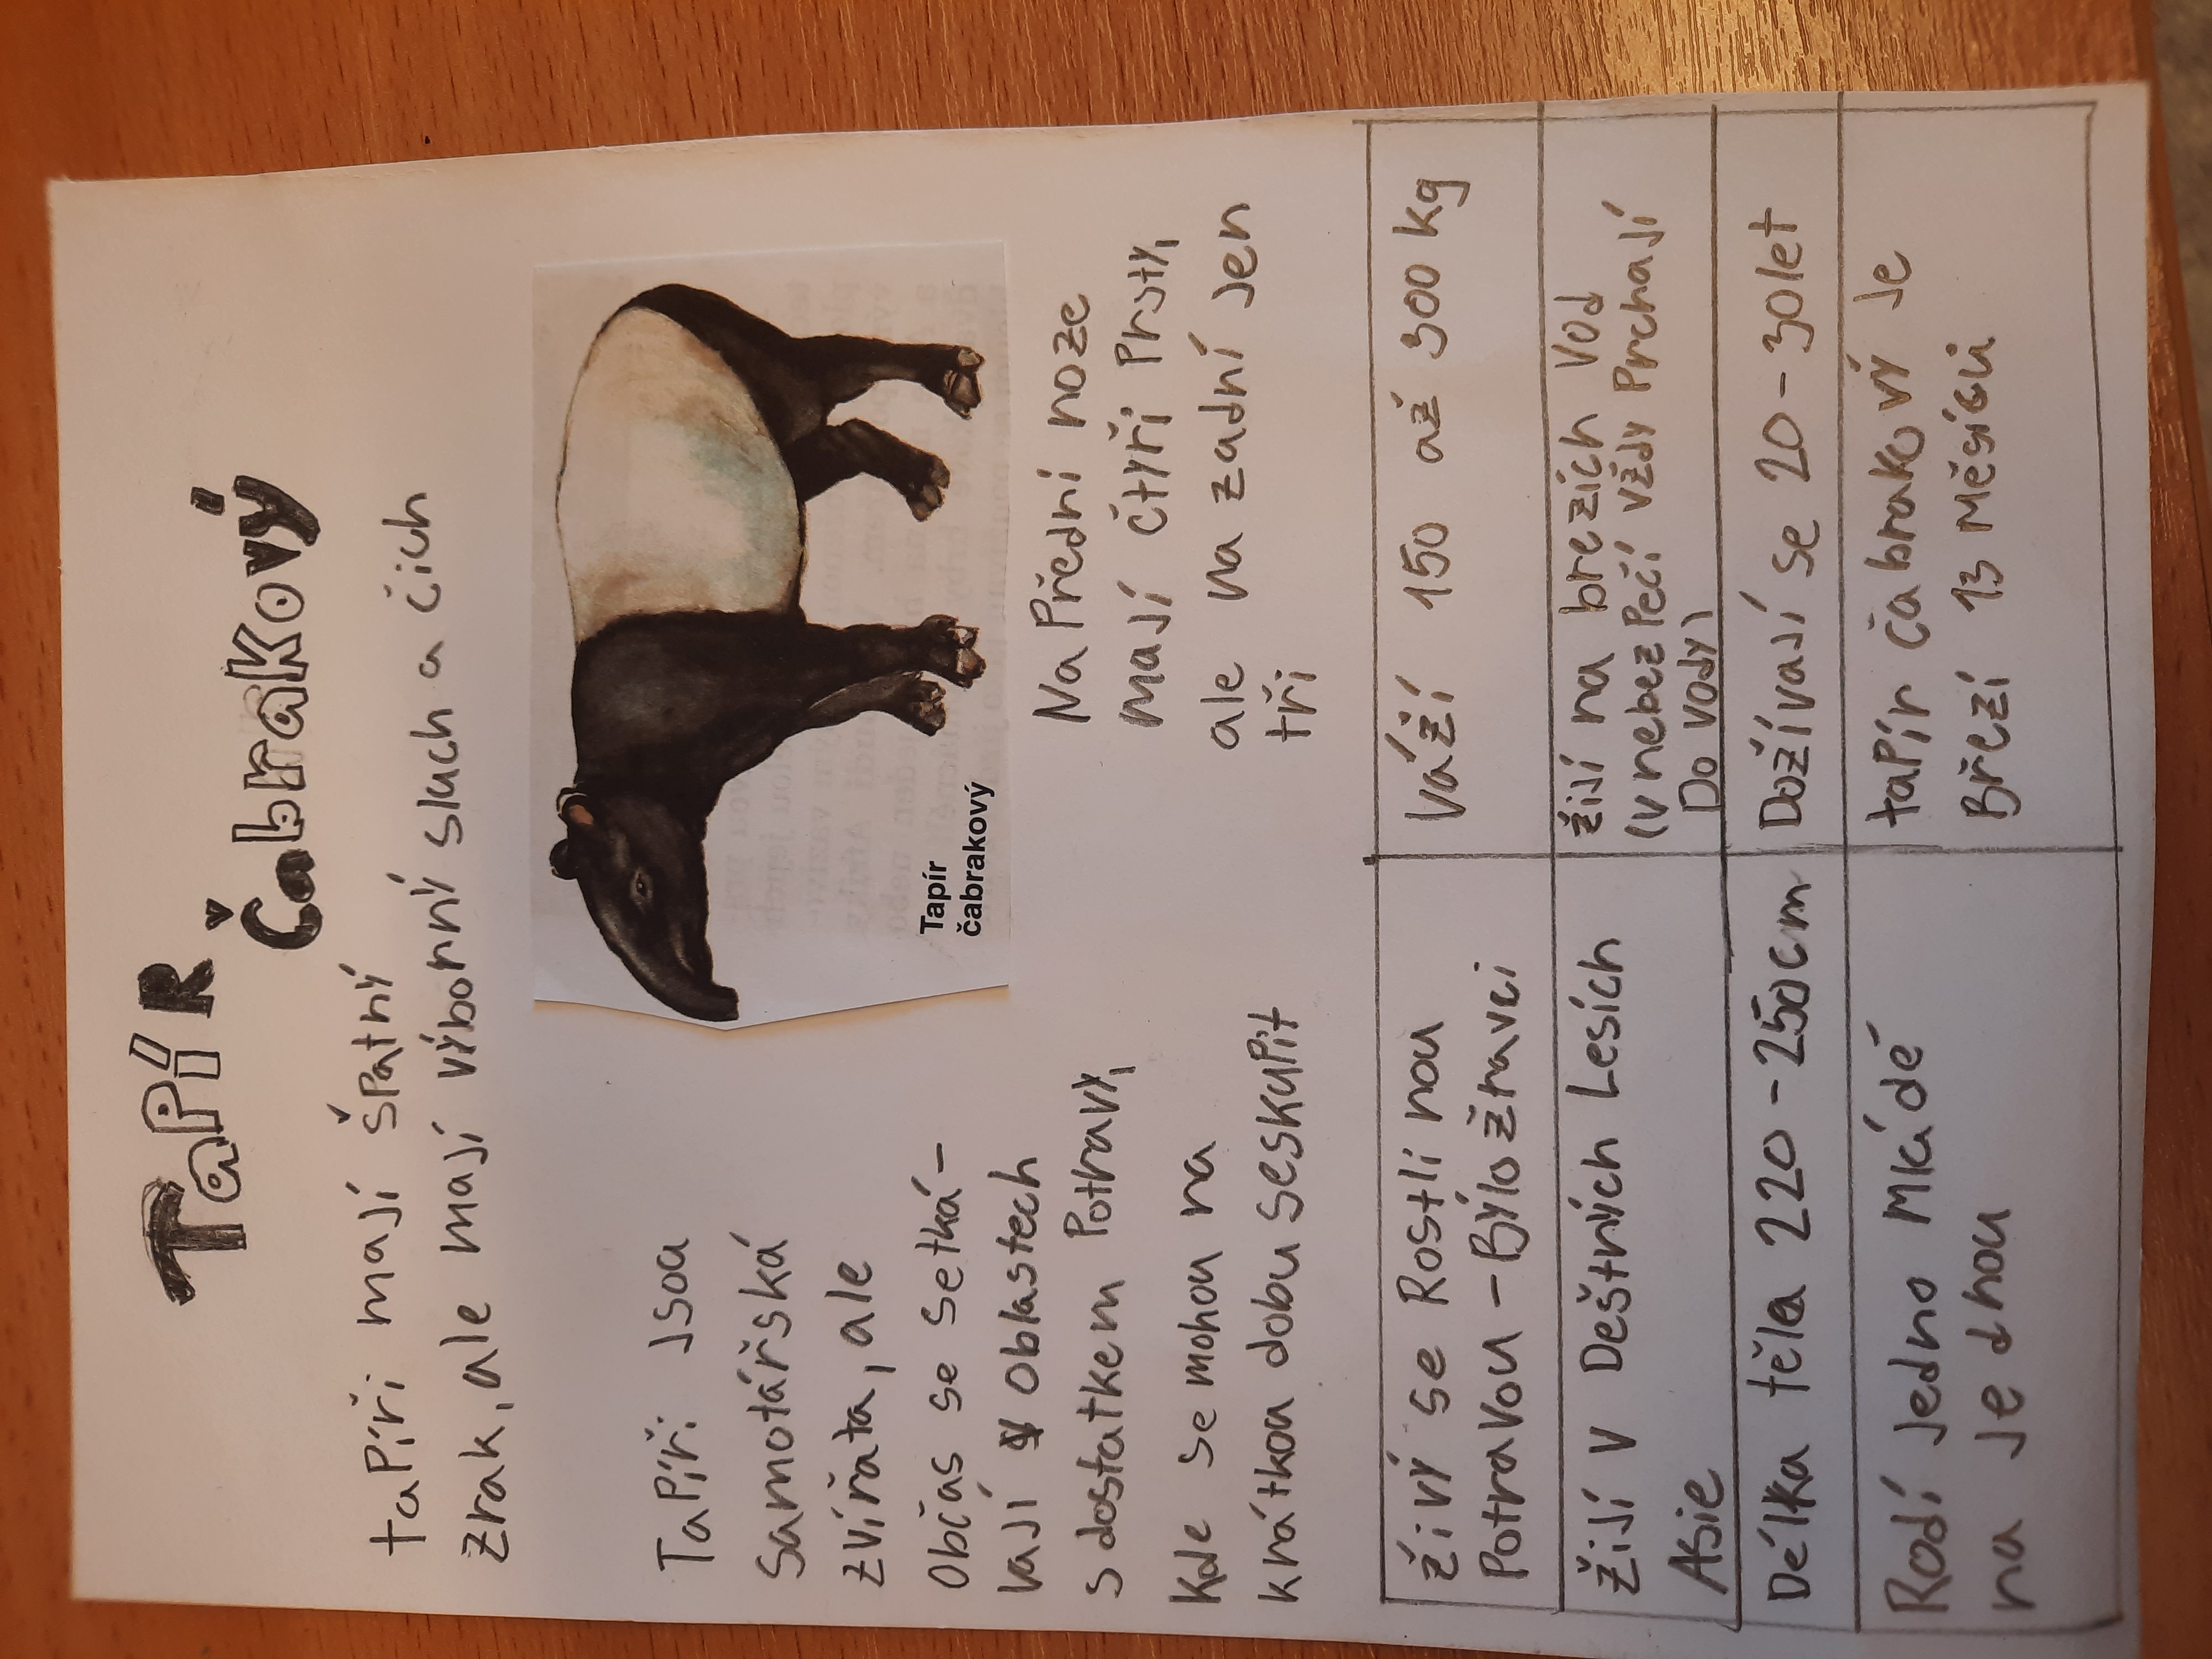 TaPÍR
Čabrakový
taPíři mají šPatný
zrak, ale mají výborný sluch a čich
TaPíři jsou
samotářská
zvířata, ale
Občas se setká-
vají v oblastech
s dostatkem Potravy,
Kde se mohou na
krátkou dobu seskuPit
Tapír
čabrakový
Na Přední noze
mají čtyři Prsty,
ale na zadní jen
tři
živý se Rostli nou
Potravou - Býložravci
Váží 150 až 300 kg
Žijí v Deštných Lesích
Asie
žijí na brezích vod
(v nebezPečí vždy Prchají
Do vody)
Délka těla 220 - 250cm
Dožívají se 20 - 30let
Rodí jedno Mládě
na jednou
taPír čabrakový je
Březí 13 Měsíců